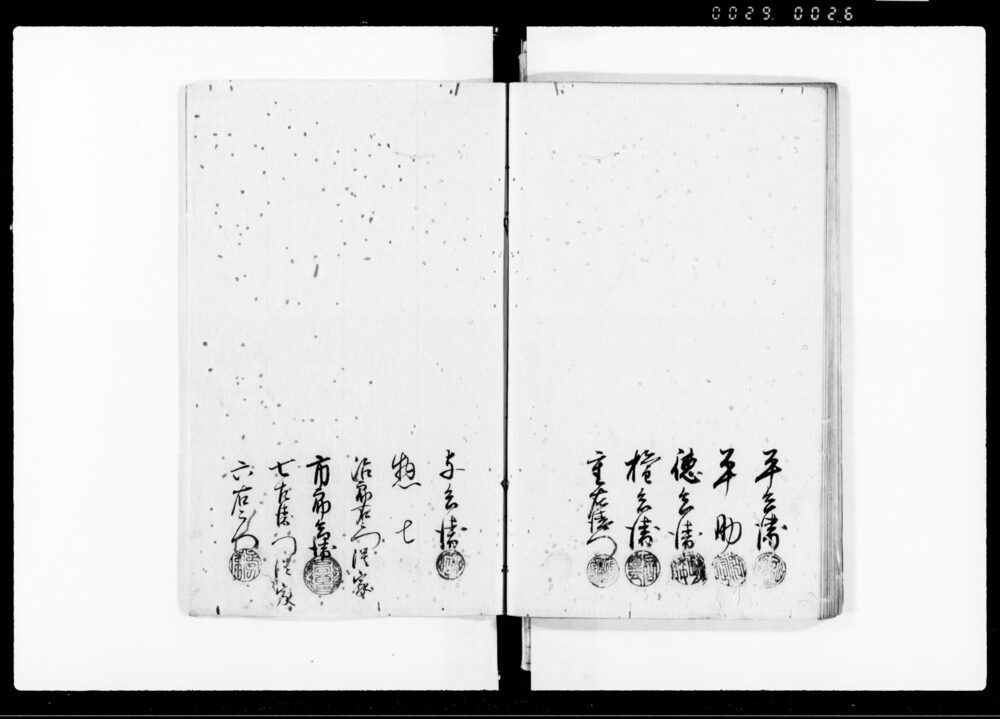 0029. 0026
平兵衛
平助
徳兵衛
権兵衛
重右衛門
与兵衛
惣七
治郎右衛門後家
市郎兵衛
七右衛門後家
六右衛門